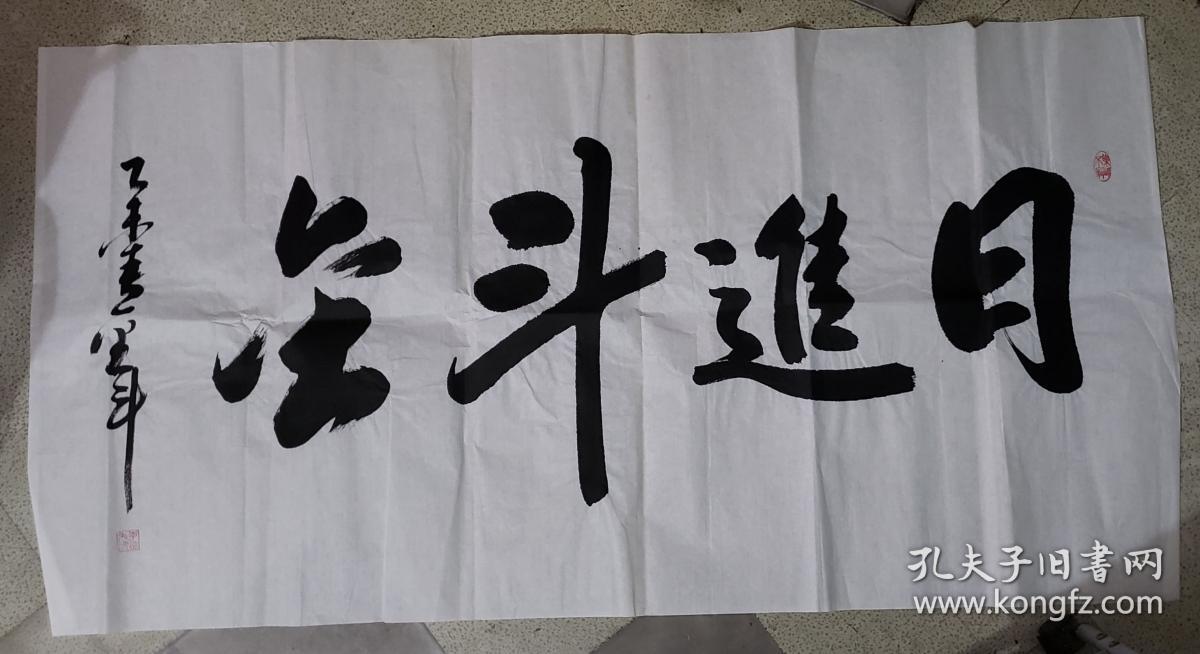 日進斗金
乙未
孔夫子旧書网
www.kongfz.com